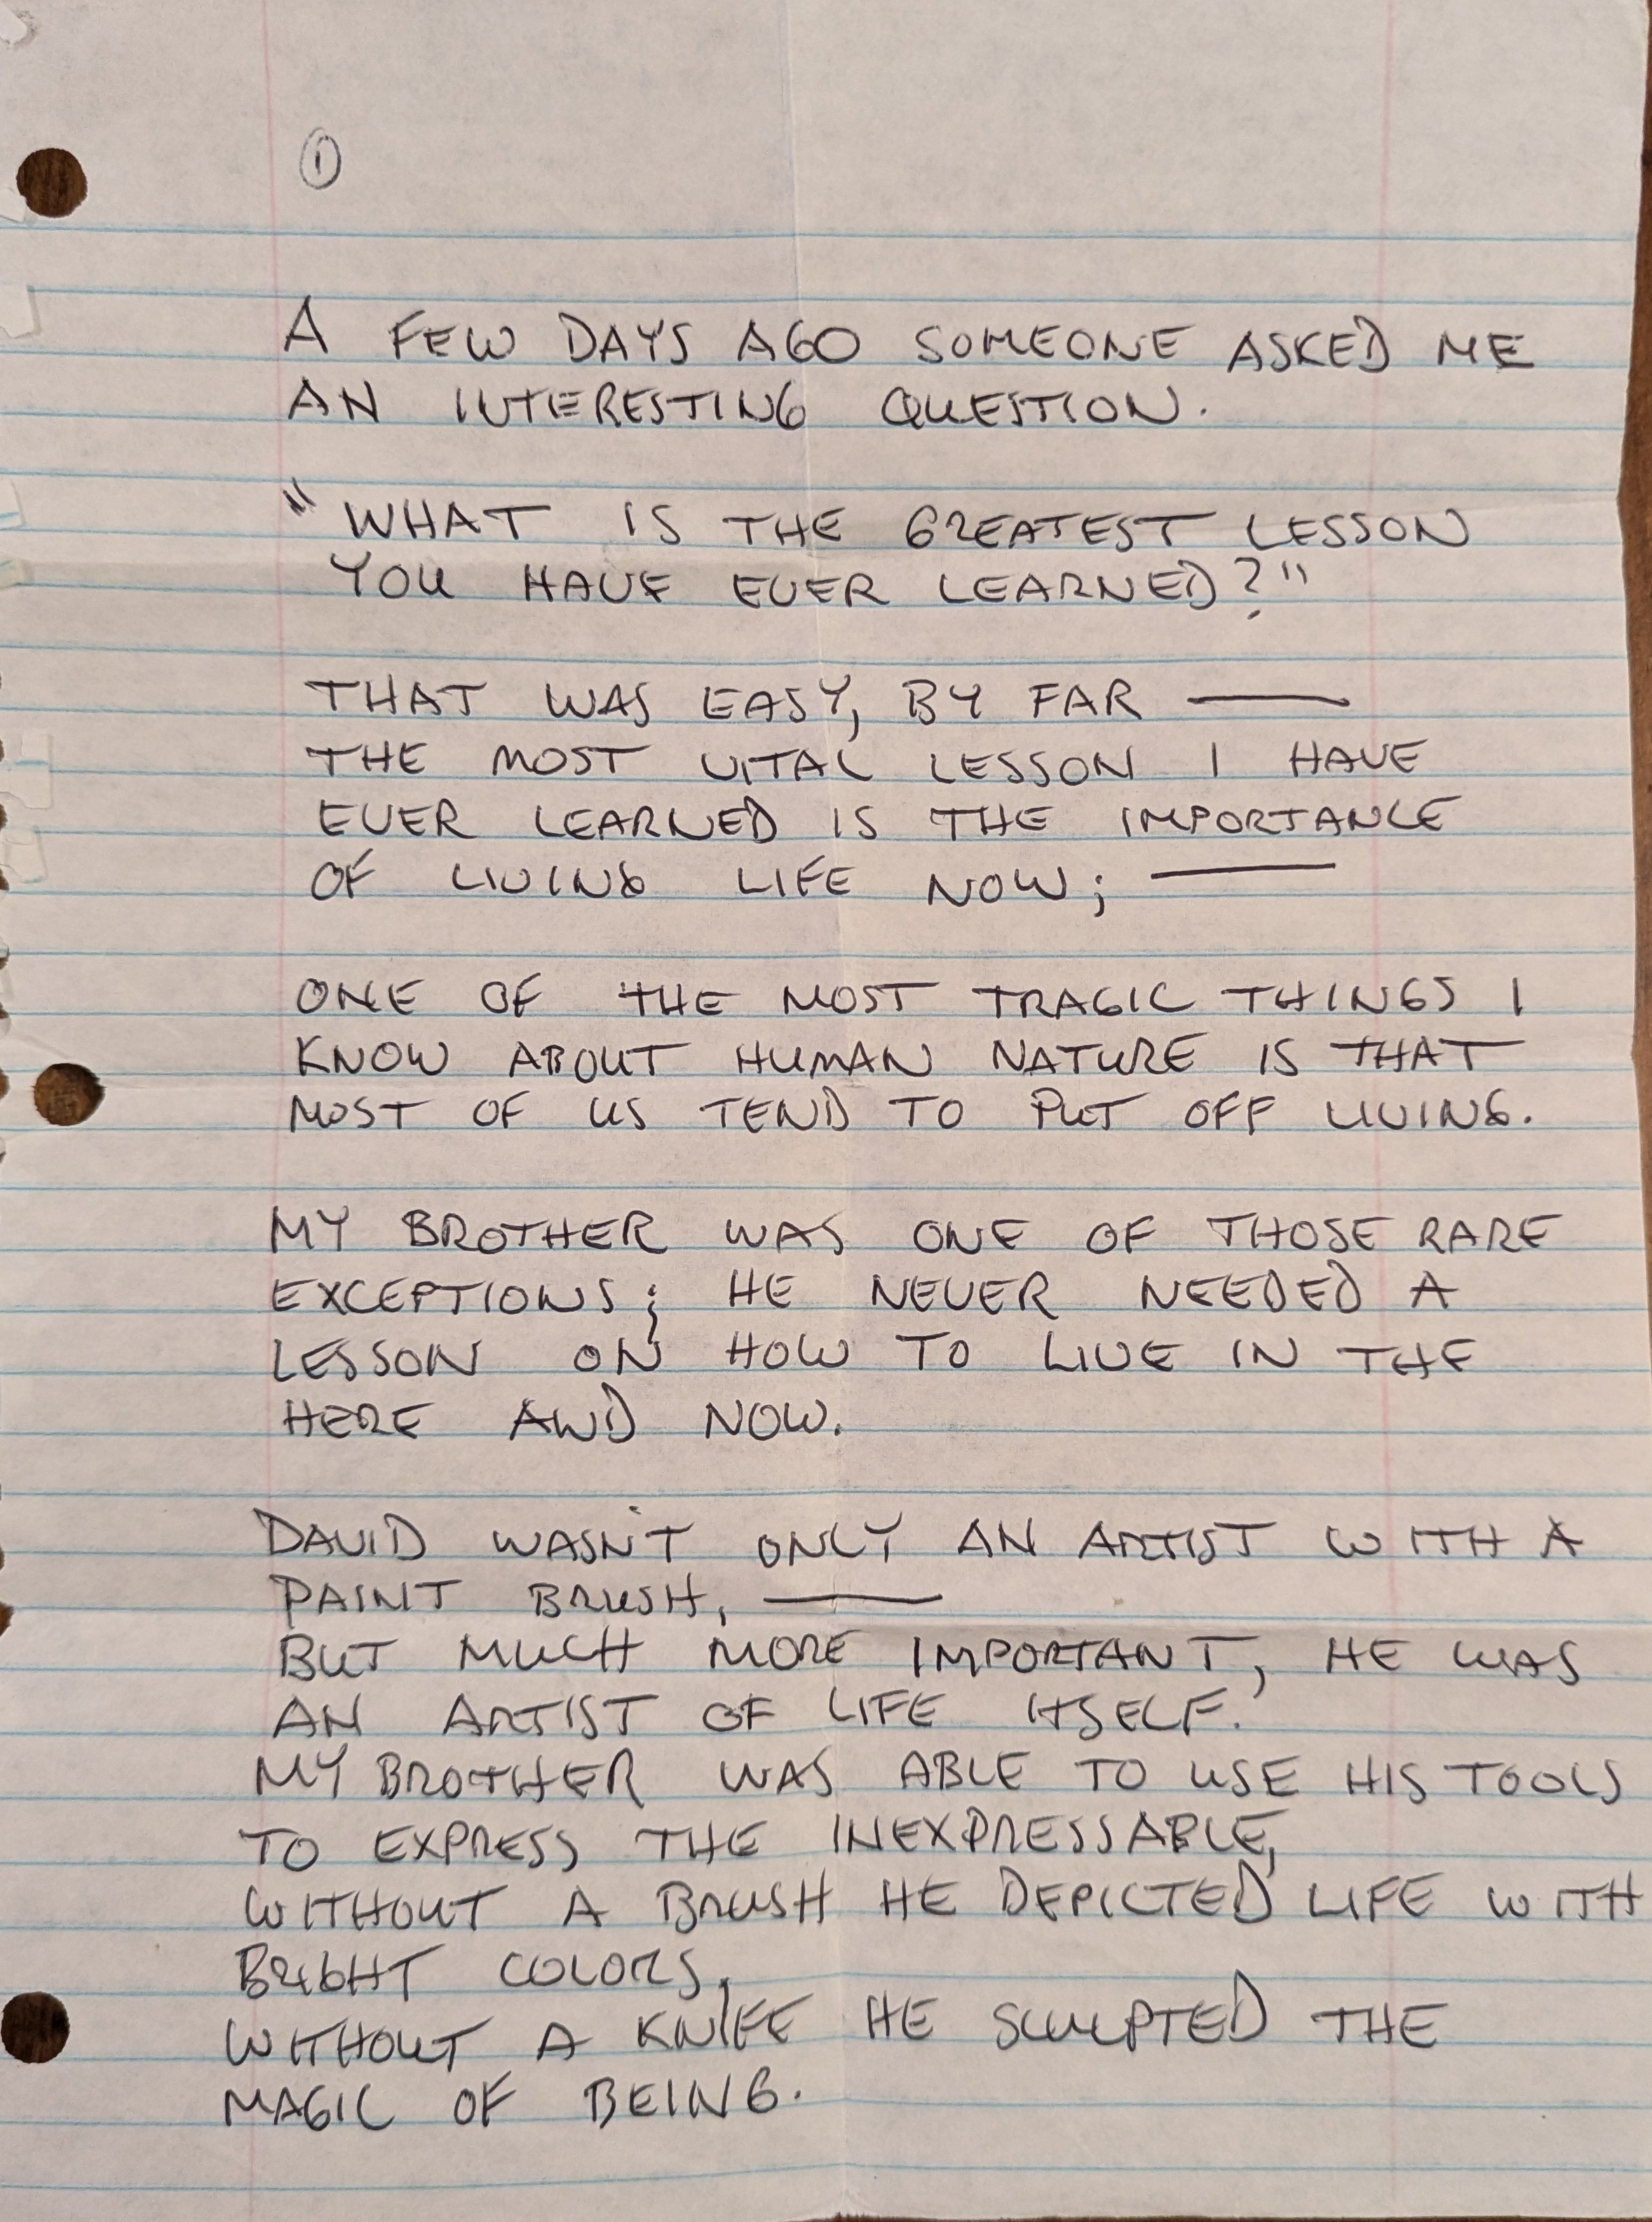 ①
A FEW DAYS AGO SOMEONE ASKED ME
AN INTERESTING QUESTION.
"WHAT IS THE GREATEST LESSON
YOU HAVE EVER LEARNED?"
THAT WAS EASY, BY FAR —
THE MOST VITAL LESSON I HAVE
EVER LEARNED IS THE IMPORTANCE
OF LIVING LIFE NOW; —
ONE OF THE MOST TRAGIC THINGS I
KNOW ABOUT HUMAN NATURE IS THAT
MOST OF US TEND TO PUT OFF LIVING.
MY BROTHER WAS ONE OF THOSE RARE
EXCEPTIONS; HE NEVER NEEDED A
LESSON ON HOW TO LIVE IN THE
HERE AND NOW.
DAVID WASN'T ONLY AN ARTIST WITH A
PAINT BRUSH, —
BUT MUCH MORE IMPORTANT, HE WAS
AN ARTIST OF LIFE ITSELF.
MY BROTHER WAS ABLE TO USE HIS TOOLS
TO EXPRESS THE INEXPRESSABLE,
WITHOUT A BRUSH HE DEPICTED LIFE WITH
BRIGHT COLORS,
WITHOUT A KNIFE HE SCULPTED THE
MAGIC OF BEING.